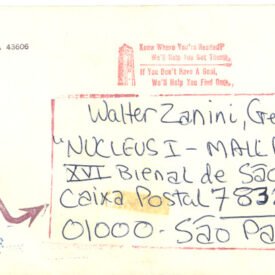 A 43606
Know Where You're Headed?
We'll Help You Get There.
If You Don't Have A Goal,
We'll Help You Find One.
Walter Zanini, Ge
"NUCLEUS I - MAIL
XVI Bienal de São
Caixa Postal 7832
01000 - São Pa